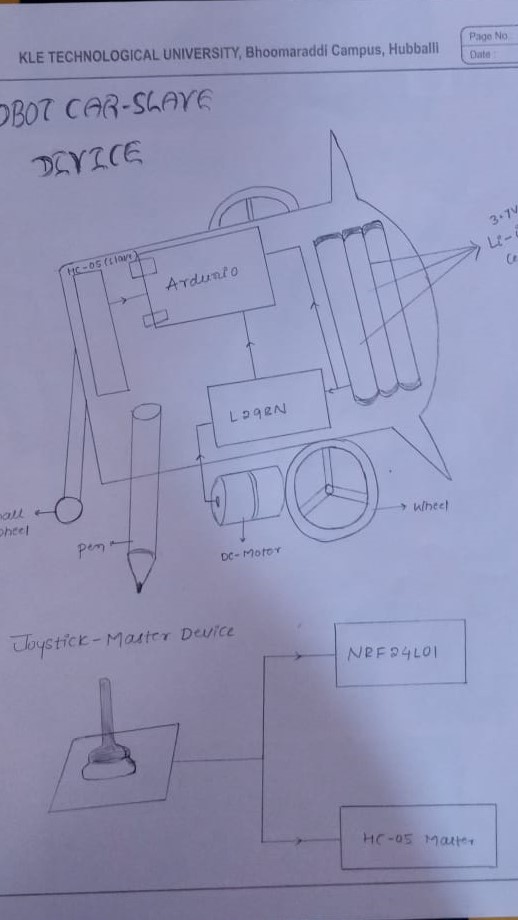 KLE TECHNOLOGICAL UNIVERSITY, Bhoomaraddi Campus, Hubballi
Page No.:
Date :
OBOT CAR-SLAVE
DEVICE
HC-05 (Slave)
Arduino
3.7V
Li-i
Ce
L298N
all
wheel
Wheel
Pen
DC-Motor
Joystick-Master Device
NRF24L01
HC-05 Master